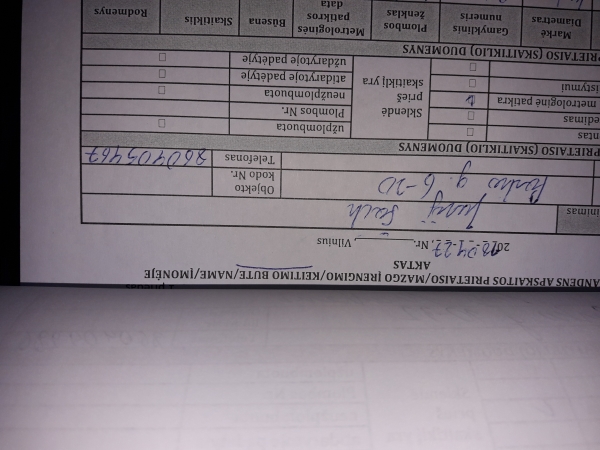 ANDENS APSKAITOS PRIETAISO/MAZGO ĮRENGIMO/KEITIMO BUTE/NAME/ĮMONĖJE
AKTAS
2018-04-27, Nr. Vilnius
inimas Jurij
g. 6-20 Objekto kodo Nr.
Telefonas 860405467
PRIETAISO (SKAITIKLIO) DUOMENYS
ntas ☐ Sklendė prieš skaitiklį yra užplombuota ☐
edimas ☐ Plombos Nr.
metrologinė patikra neužplombuota ☐
istymui ☐ atidarytoje padėtyje ☐
☐ uždarytoje padėtyje ☐
PRIETAISO (SKAITIKLIO) DUOMENYS
Markė Diametras Gamyklinis numeris Plombos ženklas Metrologinės patikros data Būsena Skaitiklis Rodmenys